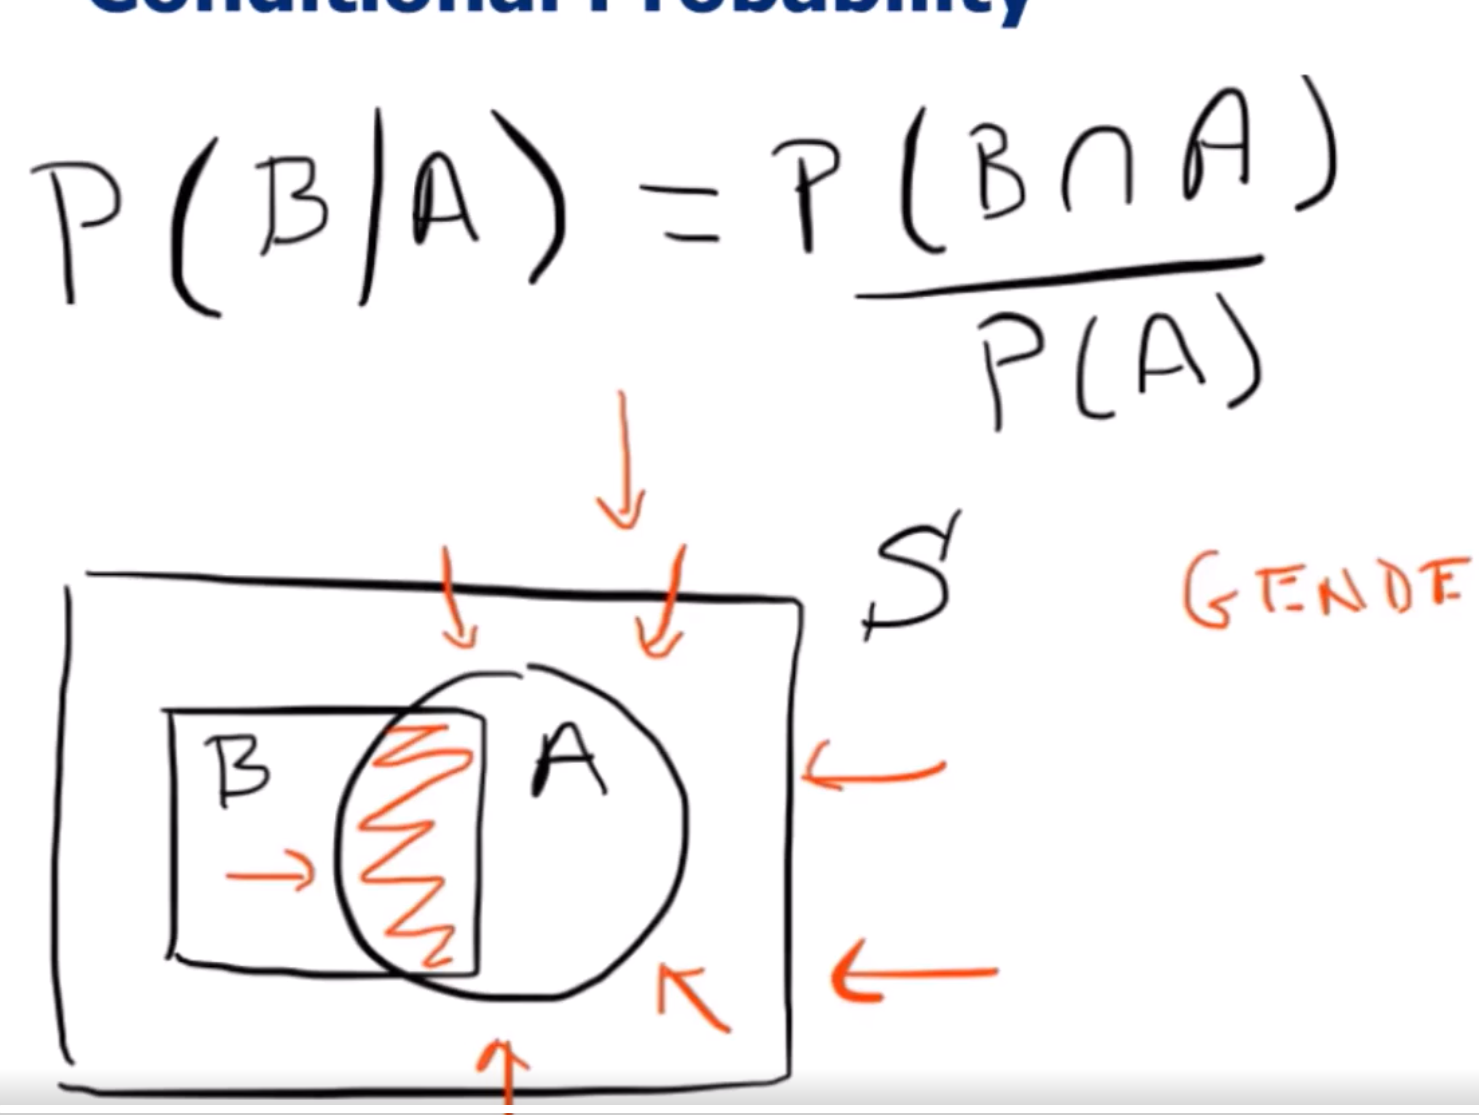 Conditional Probability
P(B|A) = P(B∩A)
P(A)
S
GENDE
B
A